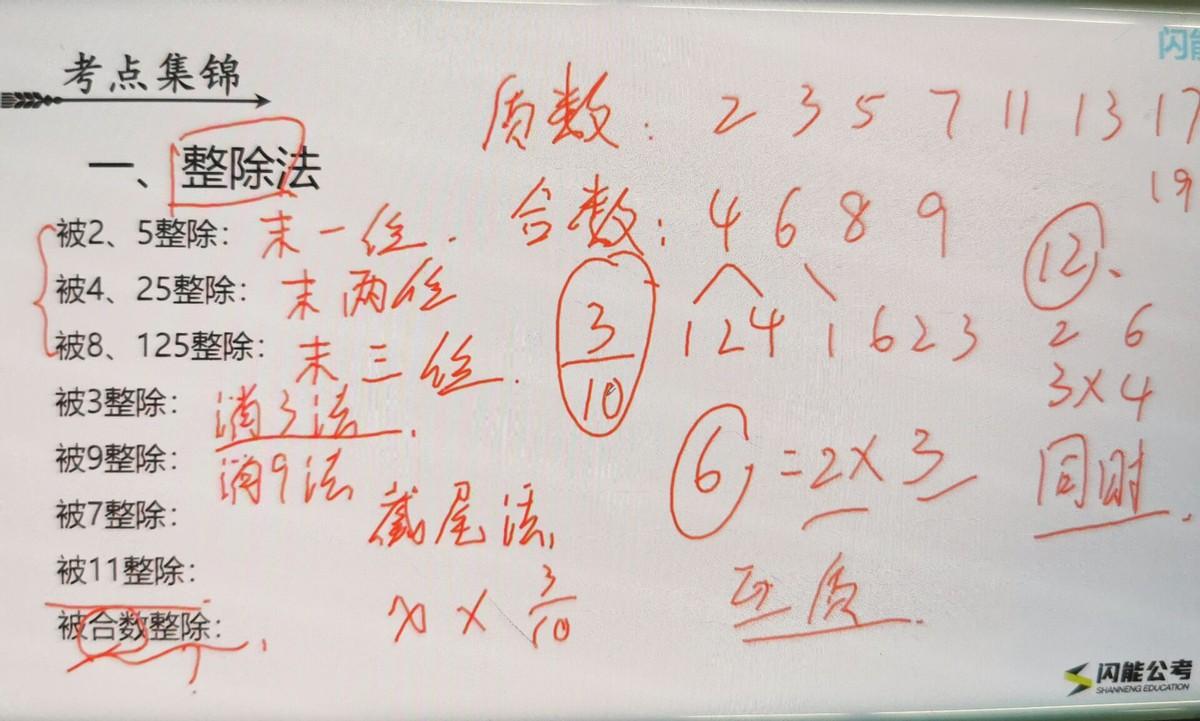 闪能
考点集锦
质数: 2 3 5 7 11 13 17
19
一、整除法
合数: 4 6 8 9
12、
被2、5整除: 末一位.
被4、25整除: 末两位
被8、125整除: 末三位.
3/10
1 2 4 1 6 2 3
2 6
3×4
被3整除: 消3法.
被9整除: 消9法
6 = 2×3
同时.
被7整除: 截尾法,
被11整除:
被合数整除:
x × 3/10
互质.
闪能公考
SHANNENG EDUCATION